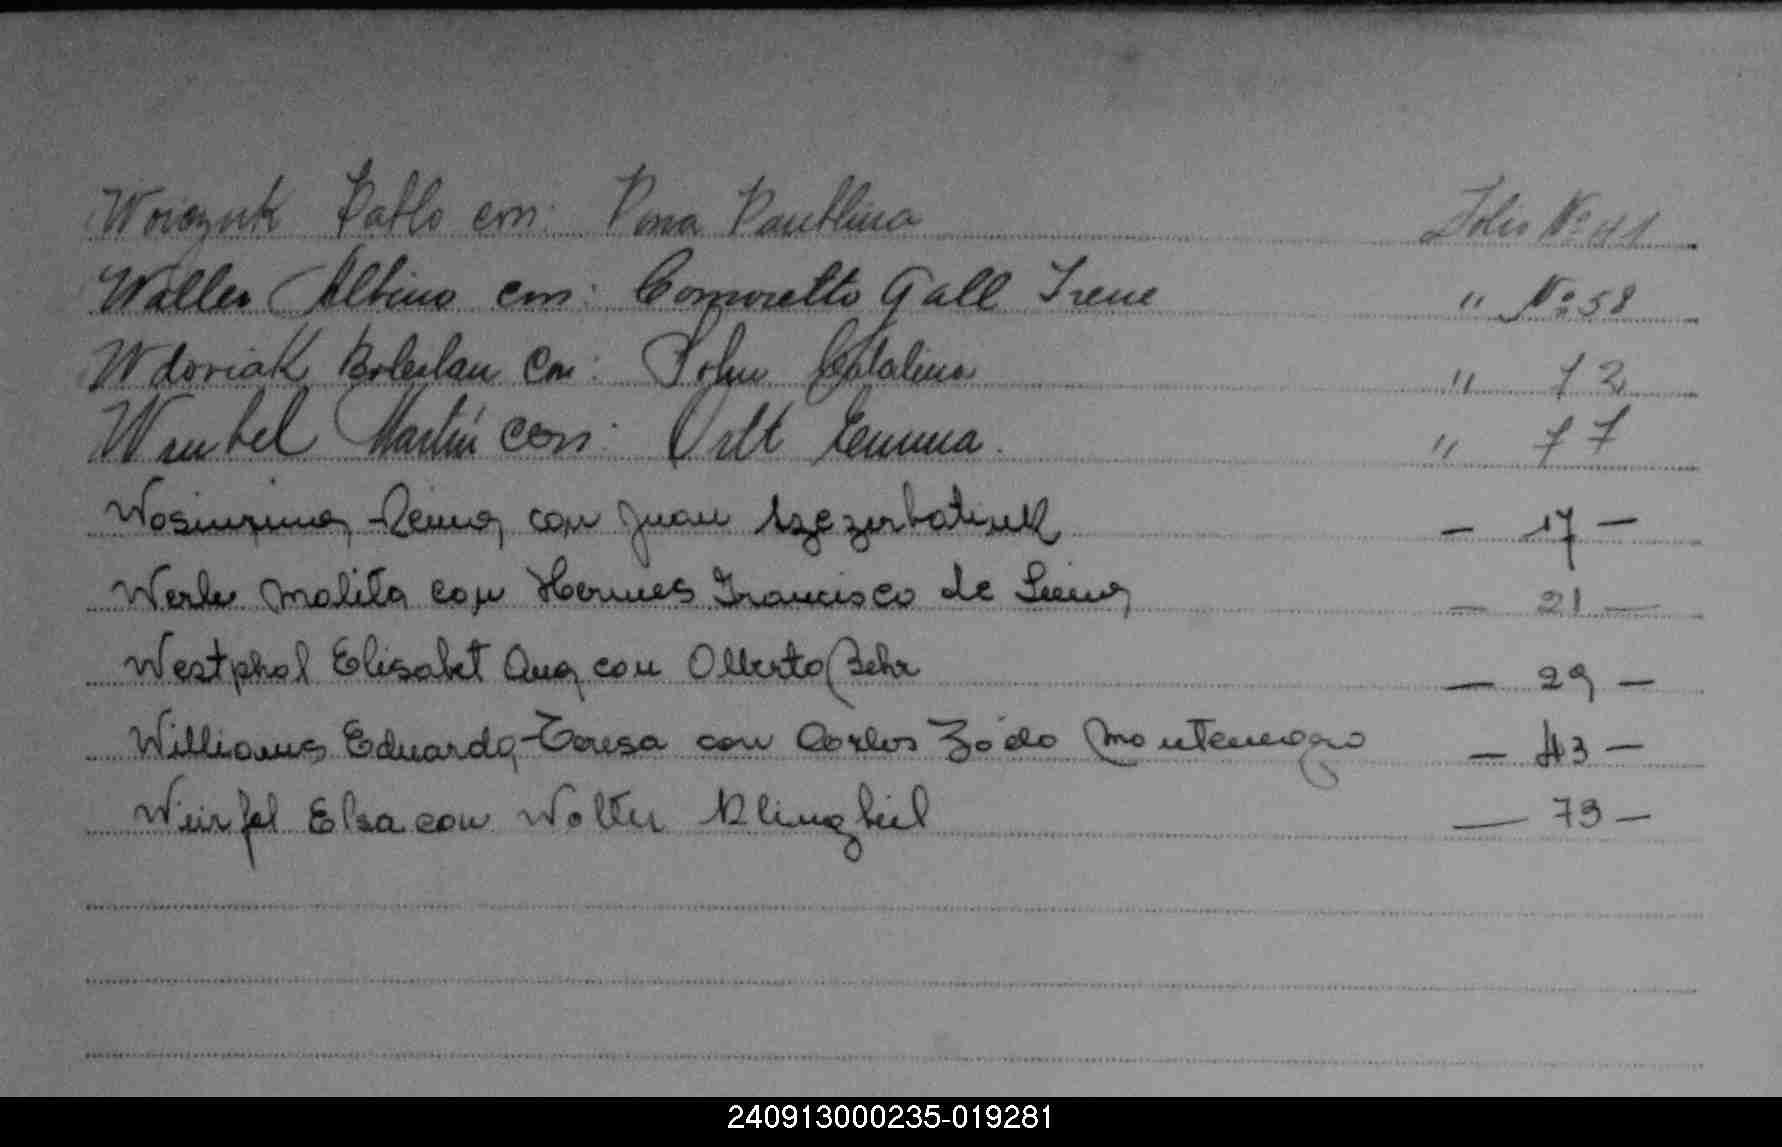 Woiczuk Pablo con: Rosa Paublina Folio Nº 41
Waller Albino con: Comoretto Gall Irene " Nº 58
Wdoviak Boleslau Con: Catalina " 72
Wrubel Martín con: Ortt Emma. " 77
con Juan Szczerbatiuk — 17 —
Werle Malita con Hermes Francisco de Lima — 21 —
Westphal Elisabet Ana con Alberto Behr — 29 —
Williams Eduarda Teresa con Carlos Montenegro — 43 —
Wirfel Elsa con Walter Klingbeil — 73 —
240913000235-019281